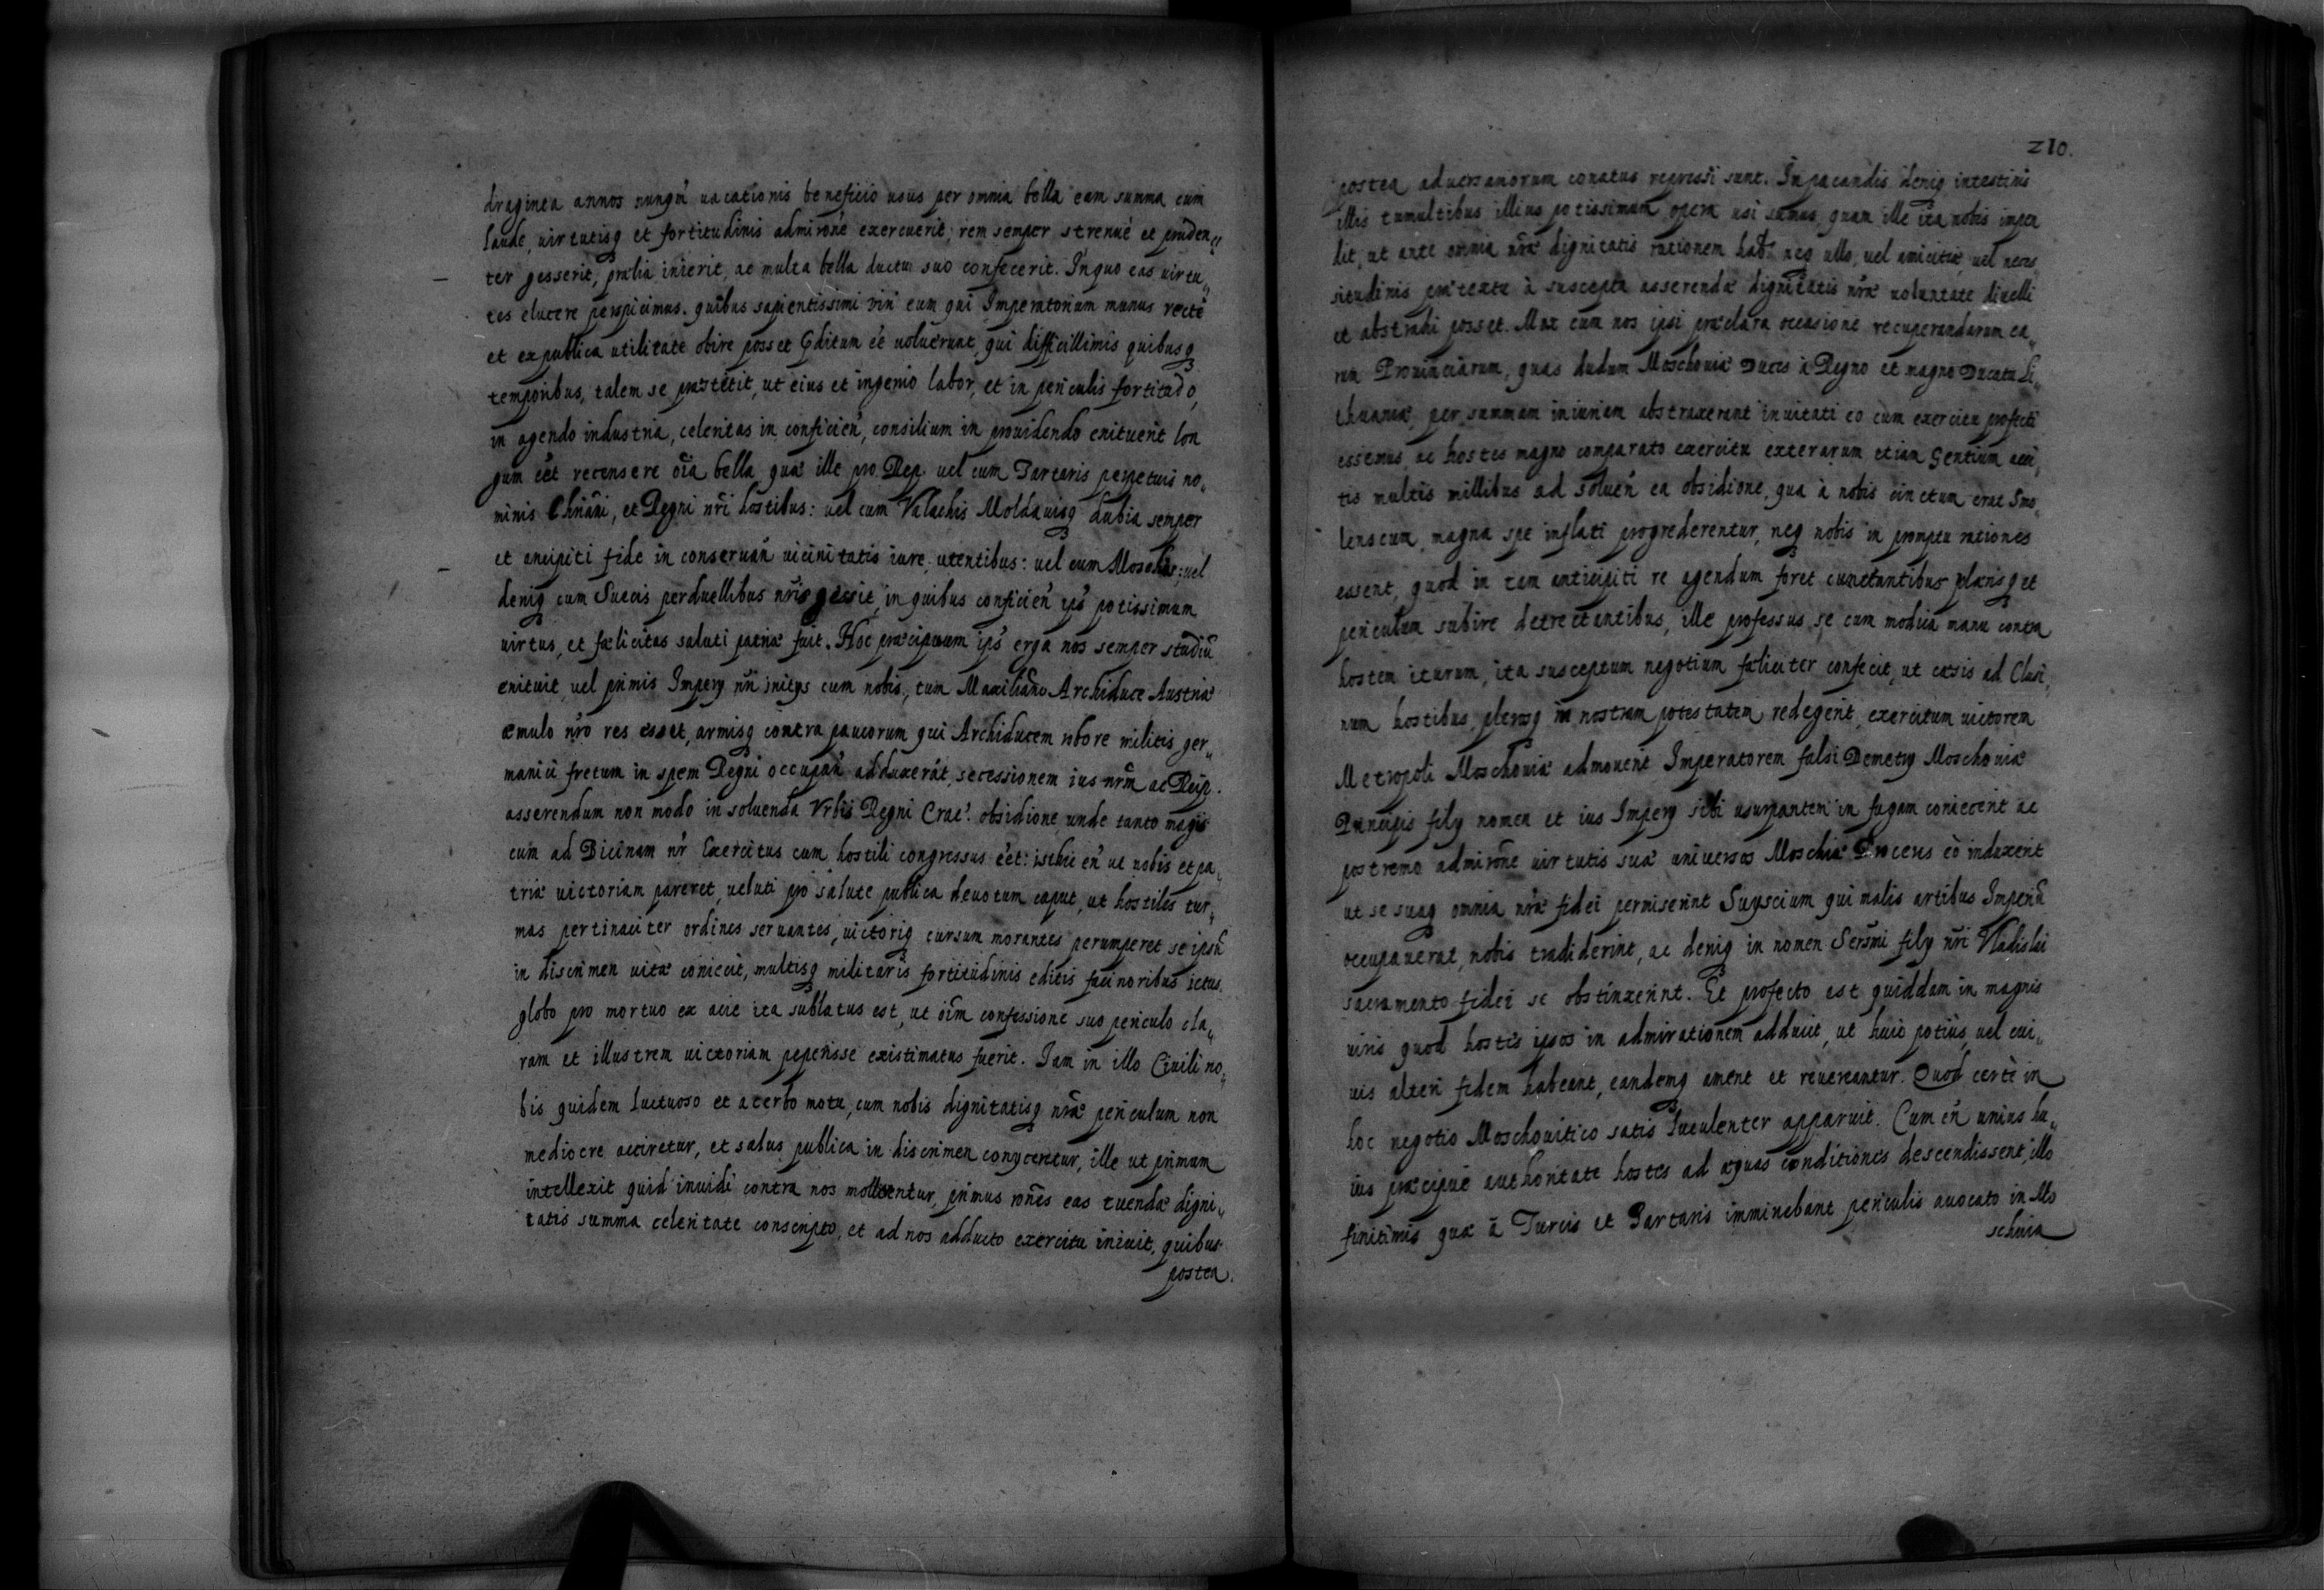 draginta annos nunqm̃ uacationis beneficio usus per omnia bella eam summa cum
laude, uirtutisq et fortitudinis admirone exercuerit; rem semper strenuè et pruden„
ter gesserit, prælia inierit, ac multa bella ductu suo confecerit. In quo eas uirtu„
tes elucere perspicimus, quibus sapientissimi viri eum qui Imperatorium munus recte
et ex publica utilitate obire posset p̃ditum eẽ uoluerunt, qui difficillimis quibusq
temporibus, talem se præstitit, ut eius et ingenio labor, et in periculis fortitudo,
in agendo industria, celeritas in conficien̄, consilium in prouidendo enituerit lon
gum eẽt recensere oĩa bella quæ ille pro Rep. uel cum Tartaris perpetuis no„
minis Chriãni, et Regni nr̃i hostibus: uel cum Valachis Moldauisq dubia semper
et ancipiti fide in conseruan̄ uicinitatis iure utentibus: uel cum Moschis: uel
deniq cum Suecis perduellibus nr̃is gessit, in quibus conficien̄ ip̃s potissimum
uirtus, et fœlicitas saluti patriæ fuit. Hoc præcipuum ip̃s erga nos semper studiũ
enituit, uel primis Impery nr̃i initys cum nobis, tum Maxiliano Archiduce Austriæ
æmulo nr̃o res esset, armisq contra paucorum qui Archiducem robore militis ger„
manici fretum in spem Regni occupan̄ adduxerãt, secessionem ius nr̃m ac Reip.
asserendum non modo in soluenda Vrbis Regni Crac. obsidione unde tanto magis
cum ad Bicinam nr̃ Exercitus cum hostili congressus eẽt: isthic en̄ ut nobis et pa„
triæ uictoriam pareret, ueluti pro salute publica deuotum caput, ut hostiles tur„
mas pertinaciter ordines seruantes, uictorig cursum morantes perumperet se ipsũ
in discrimen uitæ coniecit, multisq militaris fortitudinis editis facinoribus ictus
globo pro mortuo ex acie ita sublatus est, ut oĩm confessione suo periculo cla„
ram et illustrem uictoriam peperisse existimatus fuerit. Iam in illo Ciuili no„
bis quidem luctuoso et acerbo motu, cum nobis dignitatisq nr̃æ periculum non
mediocre acciretur, et salus publica in discrimen conyceretur, ille ut primum
intellexit quid inuidi contra nos molirentur, primus rones eas tuendæ digni„
tatis summa celeritate conscripto, et ad nos adducto exercitu iniuit, quibus
postea.
210.
postea aduersariorum conatus repressi sunt. In pacandis deniq intestinis
illis tumultibus illius potissimum opera usi sumus, quam ille ita nobis impen
dit, ut ante omnia nr̃æ dignitatis rationem hab̃. neq ullo, uel amicitiæ, uel neces
situdinis prætextu à suscepta asserendæ dignitatis nr̃æ uoluntate diuelli
et abstrahi posset. Mox cum nos ipsi præclara occasione recuperandarum ea„
rum Prouinciarum, quas dudum Moschouiæ Duces à Regno et magno Ducatu Li„
thuaniæ, per summam iniuriam abstraxerant inuitati eo cum exercitu profecti
essemus, ac hostes magno comparato exercitu exterarum etiam Gentium acci„
tis multis millibus ad soluen̄ ea obsidione, qua à nobis cinctum erat Smo„
lenscum, magna spe inflati progrederentur, neq nobis in promptu rationes
essent, quod in tam anticipiti re agendum foret cunctantibus plærisq et
periculum subire detrectantibus, ille professus se cum modica manu contra
hostem iturum, ita susceptum negotium fæliciter confecit, ut cæsis ad Clusi„
num hostibus, plerosq in nostram potestatem redegerit, exercitum uictorem
Metropoli Moschouiæ admouerit Imperatorem falsi Demetry Moschouiæ
Principis fily nomen et ius Impery sibi usurpantem in fugam coniecerit ac
postremo admirone uirtutis suæ uniuersos Moschiæ Proceres eò induxerit
ut se suaq omnia nr̃æ fidei permiserint Suyscium qui malis artibus Imperiũ
occupauerat, nobis tradiderint, ac deniq in nomen Serm̃i fily nr̃i Vladislai
sacramento fidei se obstinxerint. Et profecto est quiddam in magnis
uiris quod hostes ipsos in admirationem adducit, ut huic potius, uel cui„
uis alteri fidem habeant, eandemq ament et reuereantur. Quod certè in
hoc negotio Moschouitico satis luculenter apparuit. Cum en̄ unius hu„
ius præcipuè authoritate hostes ad æquas conditiones descendissent, illo
finitimis quæ à Turcis et Tartaris imminebant periculis auocato in Mo
schouia